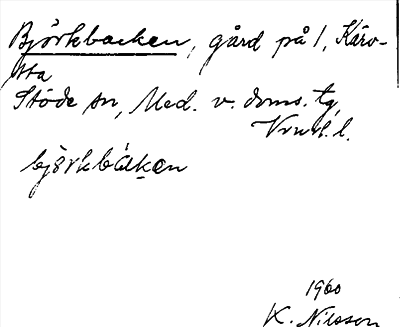 Björkbacken, gård på 1, Kärv-
sta
Stöde sn, Med. v. doms. tg,
Vrnl. l.
björkbáken
1960
K. Nilsson